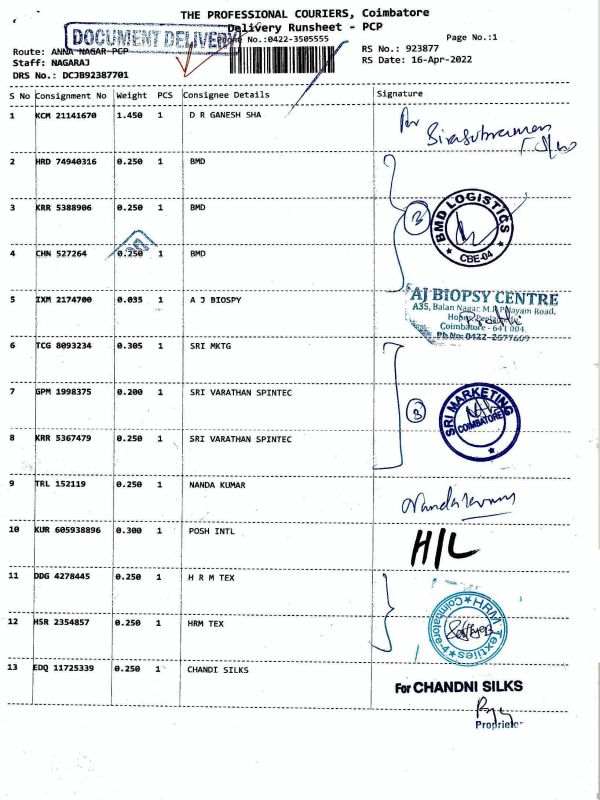 THE PROFESSIONAL COURIERS, Coimbatore
Delivery Runsheet - PCP
DOCUMENT DELIVERY
Phone No.:0422-3505555
Page No.:1
Route: ANNA NAGAR-PCP
RS No.: 923877
Staff: NAGARAJ
RS Date: 16-Apr-2022
DRS No.: DCJB92387701
S No Consignment No Weight PCS Consignee Details Signature
1 KCM 21141670 1.450 1 D R GANESH SHA
2 HRD 74940316 0.250 1 BMD
3 KRR 5388906 0.250 1 BMD
3
BMD LOGISTICS
CBE-04
4 CHN 527264 0.250 1 BMD
5 IXM 2174700 0.035 1 A J BIOSPY
AJ BIOPSY CENTRE
A35, Balan Nagar, M.R.P Nayam Road,
Coimbatore - 641 004
Ph No: 0422-2577609
6 TCG 8093234 0.305 1 SRI MKTG
7 GPM 1998375 0.200 1 SRI VARATHAN SPINTEC
3
SRI MARKETING
COIMBATORE
8 KRR 5367479 0.250 1 SRI VARATHAN SPINTEC
9 TRL 152119 0.250 1 NANDA KUMAR
10 KUR 605938896 0.300 1 POSH INTL
H/L
11 DDG 4278445 0.250 1 H R M TEX
12 HSR 2354857 0.250 1 HRM TEX
HRM Textiles
Coimbatore-4
13 EDQ 11725339 0.250 1 CHANDI SILKS
For CHANDNI SILKS
Proprietor